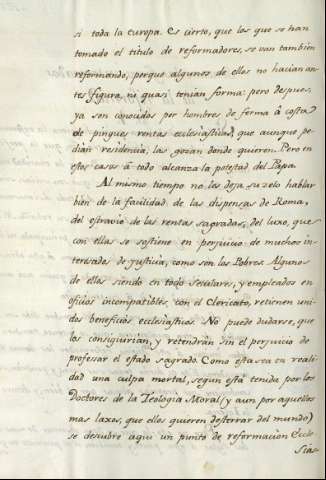 si toda la europa. Es cierto, que los que se han
tomado el titulo de reformadores, se van tambien
reformando, porque algunos de ellos no hacian an-
tes figura, ni quasi tenian forma: pero despues,
ya son conocidos por hombres de forma â costa
de pingues rentas ecclesiasticas, que aunque pe-
dian residencia, las gozan donde quieren. Pero en
estos casos â todo alcanza la potestad del Papa.
Al mismo tiempo no les deja su zelo hablar
bien de la facilidad de las dispensas de Roma,
del estravio de las rentas sagradas, del luxo, que
con ellas se sostiene en perjuicio de muchos in-
teresados de justicia, como son los Pobres. Algunos
de ellos siendo en todo seculares, y empleados en
oficios incompatibles con el Clericato, retienen uni-
dos beneficios ecclesiasticos. No puede dudarse, que
los consiguirian, y retendràn sin el perjuicio de
professar el estado sagrado. Como esta sea en reali-
dad una culpa mortal, segun està tenida por los
Doctores de la Teologia Moral (y aun por aquellos
mas laxos, que ellos quieren desterrar del mundo)
se descubre aqui un punto de reformacion Eccle-
sias-